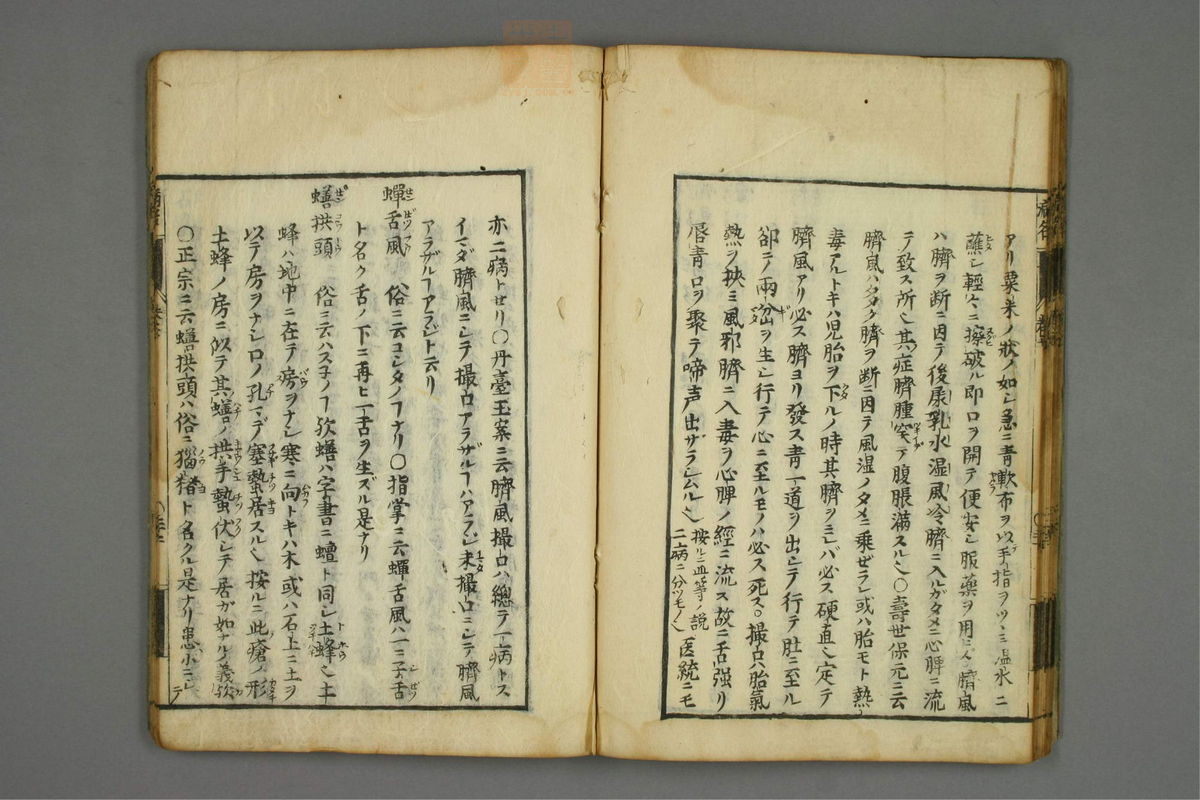 アリ粟米ノ狀ノ如シ急ニ青軟布ヲ以テ手指ヲツヽミ温水ニ
蘸シ輕々ニ擦破ル即口ヲ開テ便安シ服藥ヲ用ヒス臍風
ハ臍ヲ断ニ因テ後尿乳水湿風冷臍ニ入ルガタメニ心脾ニ流
テ致ス所也其症臍腫突ヲ腹脹満スル也〇壽世保元ニ云
臍風ハ多ク臍ヲ断ニ因テ風湿ノタメニ乗ゼラレ或ハ胎モト熱
毒アルトキハ児胎ヲ下ルノ時其臍ヲミレバ必ス硬直也定テ
臍風アリ必ス臍ヨリ發ス青一道ヲ出シテ行テ肚ニ至ル
卻ニノ兩岔ヲ生シ行テ心ニ至ルモノハ必ス死ス。撮口ハ胎氣
熱ヲ挾ミ風邪臍ニ入毒ヲ心脾ノ經ニ流ス故ニ舌强リ
唇青口ヲ聚テ啼声出ザラシムル也 按ルニ此等ノ説二病ニ分ツモノ也 医統ニモ
亦二病トセリ〇丹臺玉案ニ云臍風撮口ハ總テ一病トス
イマダ臍風ニシテ撮口アラザルフハアラズ未撮口ニシテ臍風
アラザルフアラズト云リ
蟬舌風 俗ニ云コシタノフナリ〇指掌ニ云蟬舌風ハ一ニ子舌
ト名ク舌ノ下ニ再ヒ一舌ヲ生ズル是ナリ
蟮拱頭 俗ニ云ハス子ノフ欤蟮ハ字書ニ蟺ト同シ土蜂也土
蜂ハ地中ニ在テ房ヲナシ寒ニ向トキハ木或ハ石上ニ土ヲ
以テ房ヲナシ口ノ孔マデ塞蟄居スル也按ルニ此瘡ノ形
土蜂ノ房ニ似テ其蟮ノ拱手蟄伏シテ居ガ如ナル義欤
〇正宗ニ云蟮拱頭ハ俗ニ猫猪ト名クル是ナリ患小ニシテ